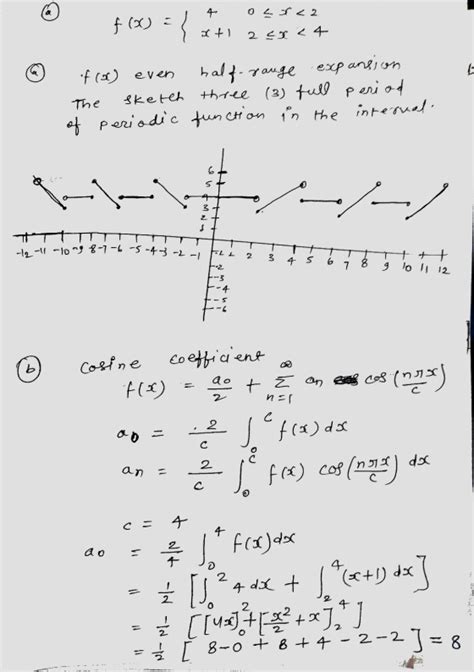 (a)
f(x) = { 4 0 ≤ x < 2
x+1 2 ≤ x < 4
(a) f(x) even half-range expansion
The sketch three (3) full period
of periodic function in the interval.
6
5
3
2
1
-12 -11 -10 -9 -8 -7 -6 -5 -4 -3 -2 -1 1 2 3 4 5 6 7 8 9 10 11 12
-2
-3
-4
-5
-6
(b) cosine coefficient
f(x) = a0/2 + ∞Σn=1 an cos (nπx/c)
a0 = 2/c ∫0^c f(x) dx
an = 2/c ∫0^c f(x) cos(nπx/c) dx
c = 4
a0 = 2/4 ∫0^4 f(x) dx
= 1/2 [∫0^2 4 dx + ∫2^4 (x+1) dx]
= 1/2 [[4x]0^2 + [x²/2 + x]2^4]
= 1/2 [8-0 + 8 + 4 - 2 - 2] = 8